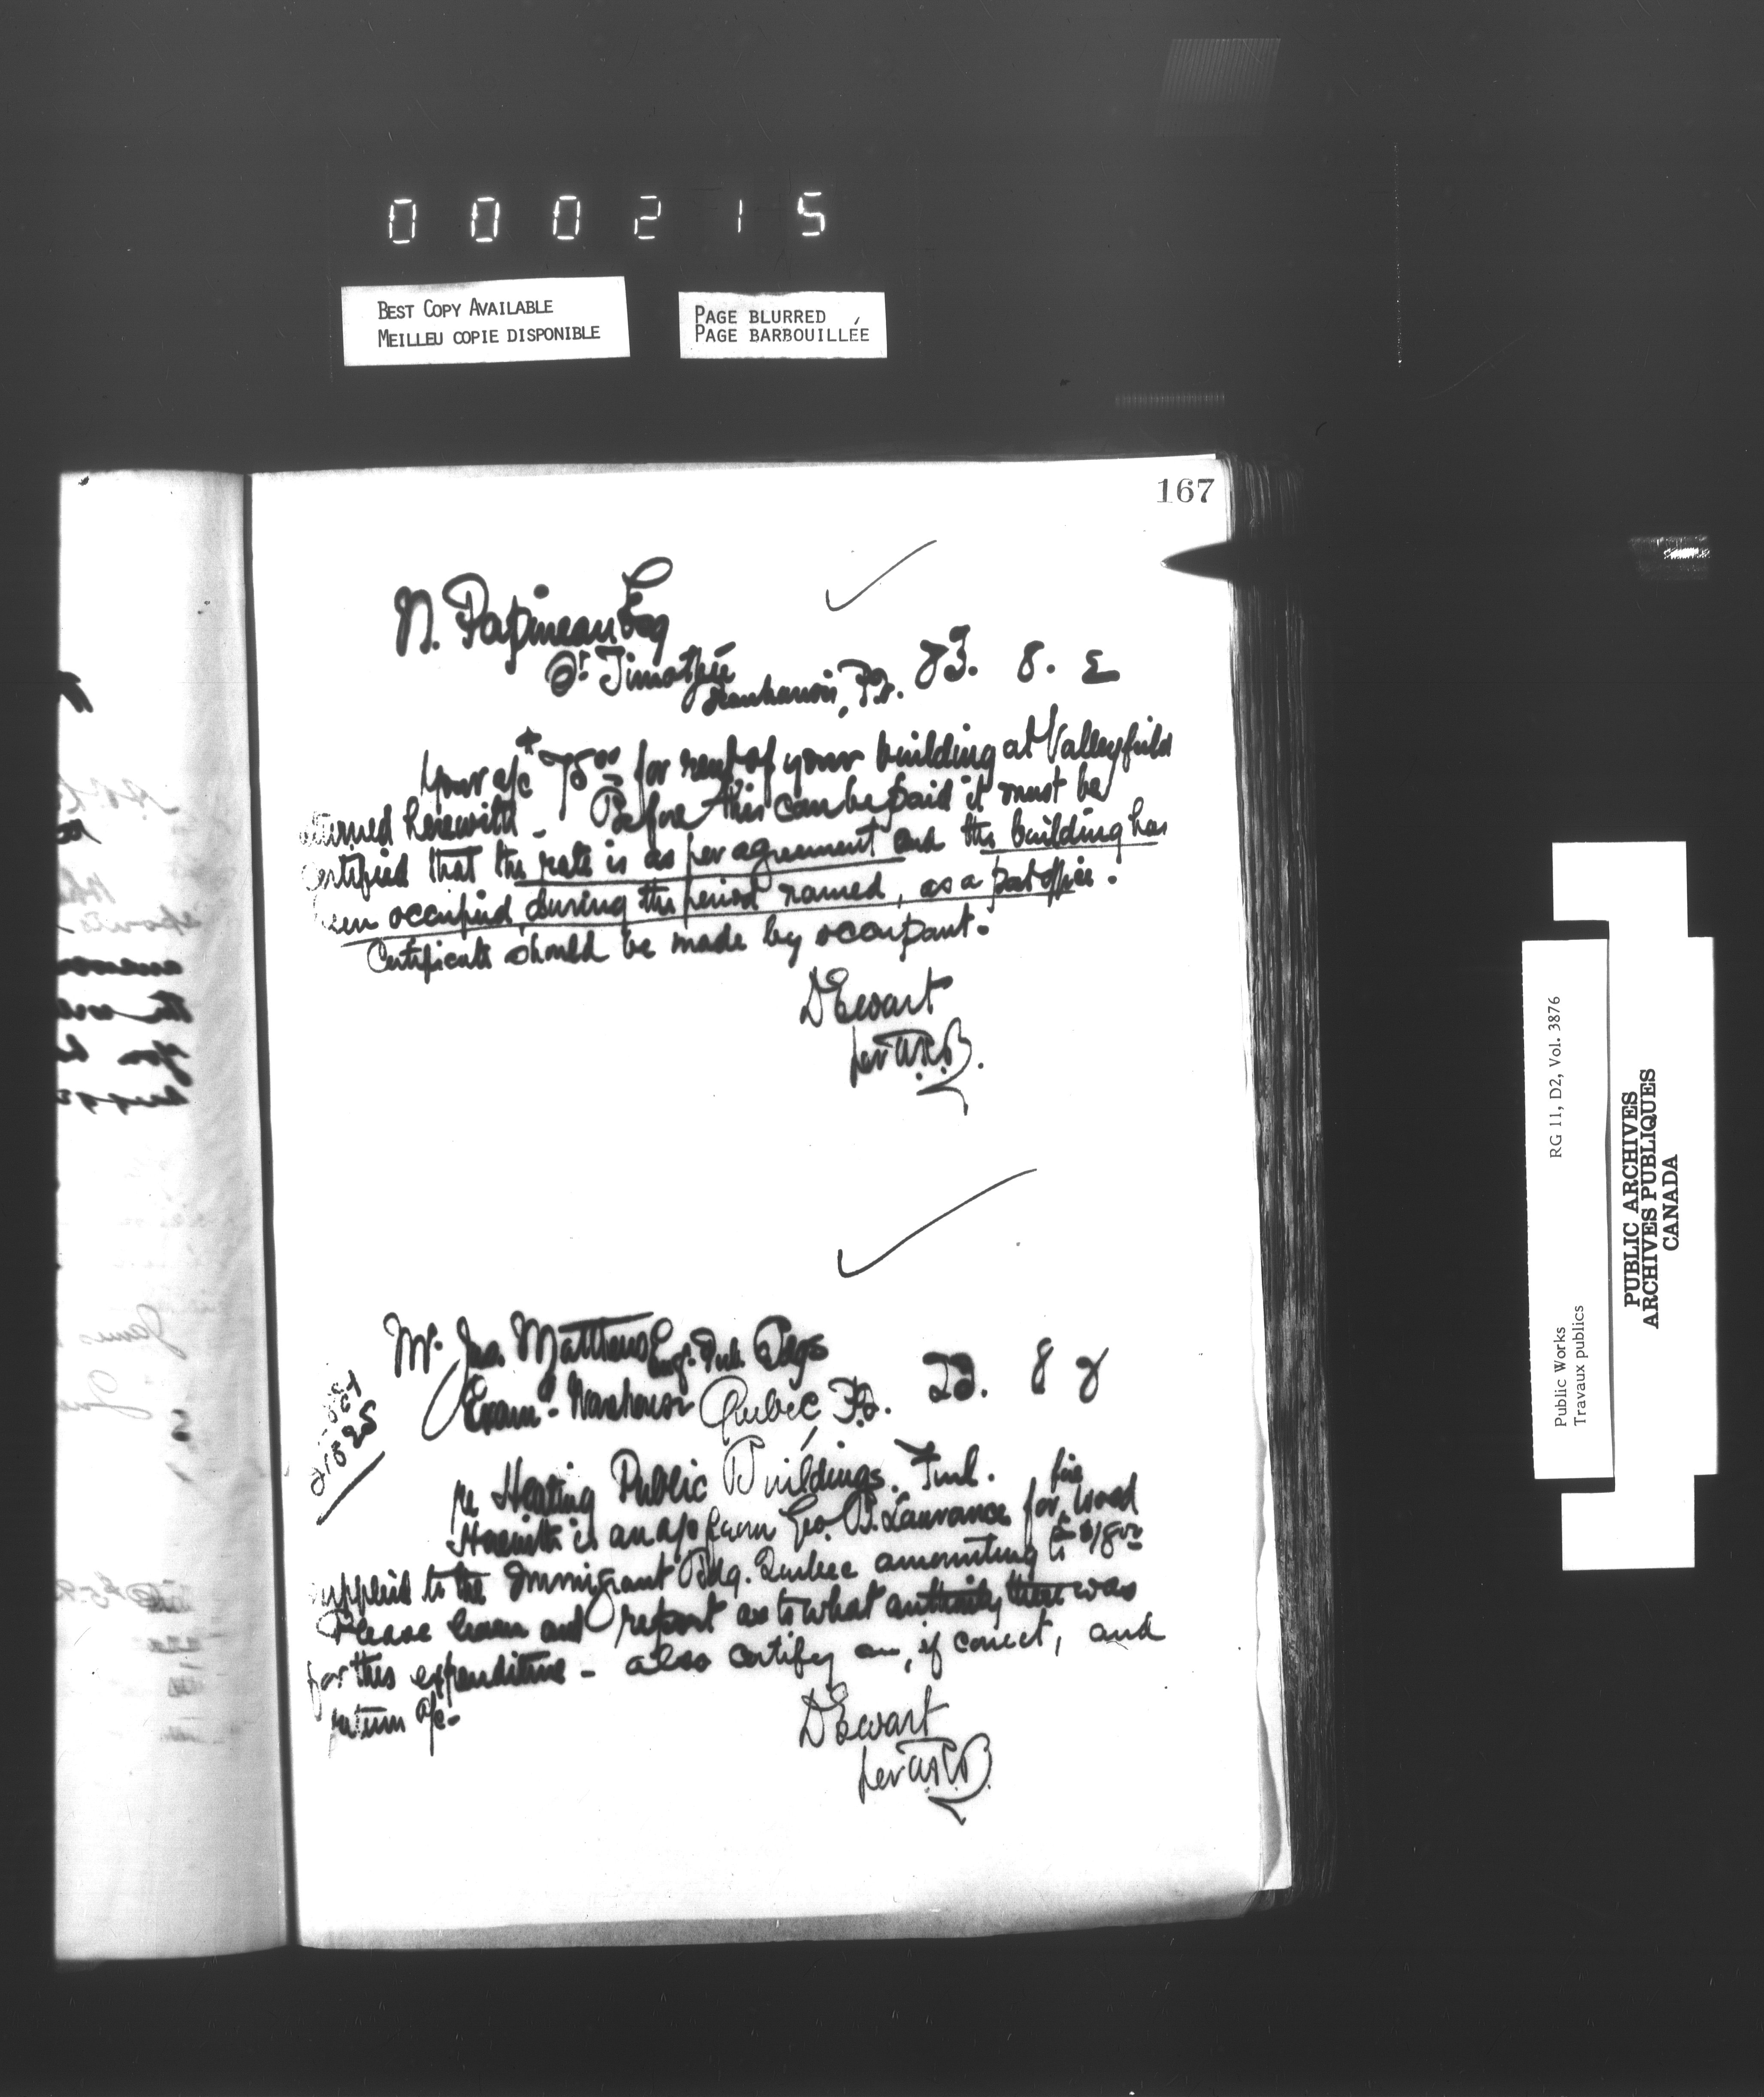 000215
BEST COPY AVAILABLE
MEILLEU COPIE DISPONIBLE
PAGE BLURRED
PAGE BARBOUILLÉE
167
N. Papineau Esq
St Timothée
Beauharnois, P.Q.
Your a/c 75.00 for rent of your building at Valleyfield
returned herewith - Before this can be paid it must be
certified that the rate is as per agreement and the building has
been occupied, during the period named, as a post office.
Certificate should be made by occupant.
D Ewart
per
Mr. Jno. Matthews Eng. Pub. Bdgs
Exam. Warehouse Quebec P.Q.
re Heating Public Buildings. Fuel.
Herewith is an a/c from Geo. B. Laurance for fire wood
supplied to the Immigrant Bdg. Quebec amounting to
Please learn and report as to what authority there was
for this expenditure - also certify a/c, if correct, and
return a/c.
D Ewart
per
RG 11, D2, Vol. 3876
Public Works
Travaux publics
PUBLIC ARCHIVES
ARCHIVES PUBLIQUES
CANADA